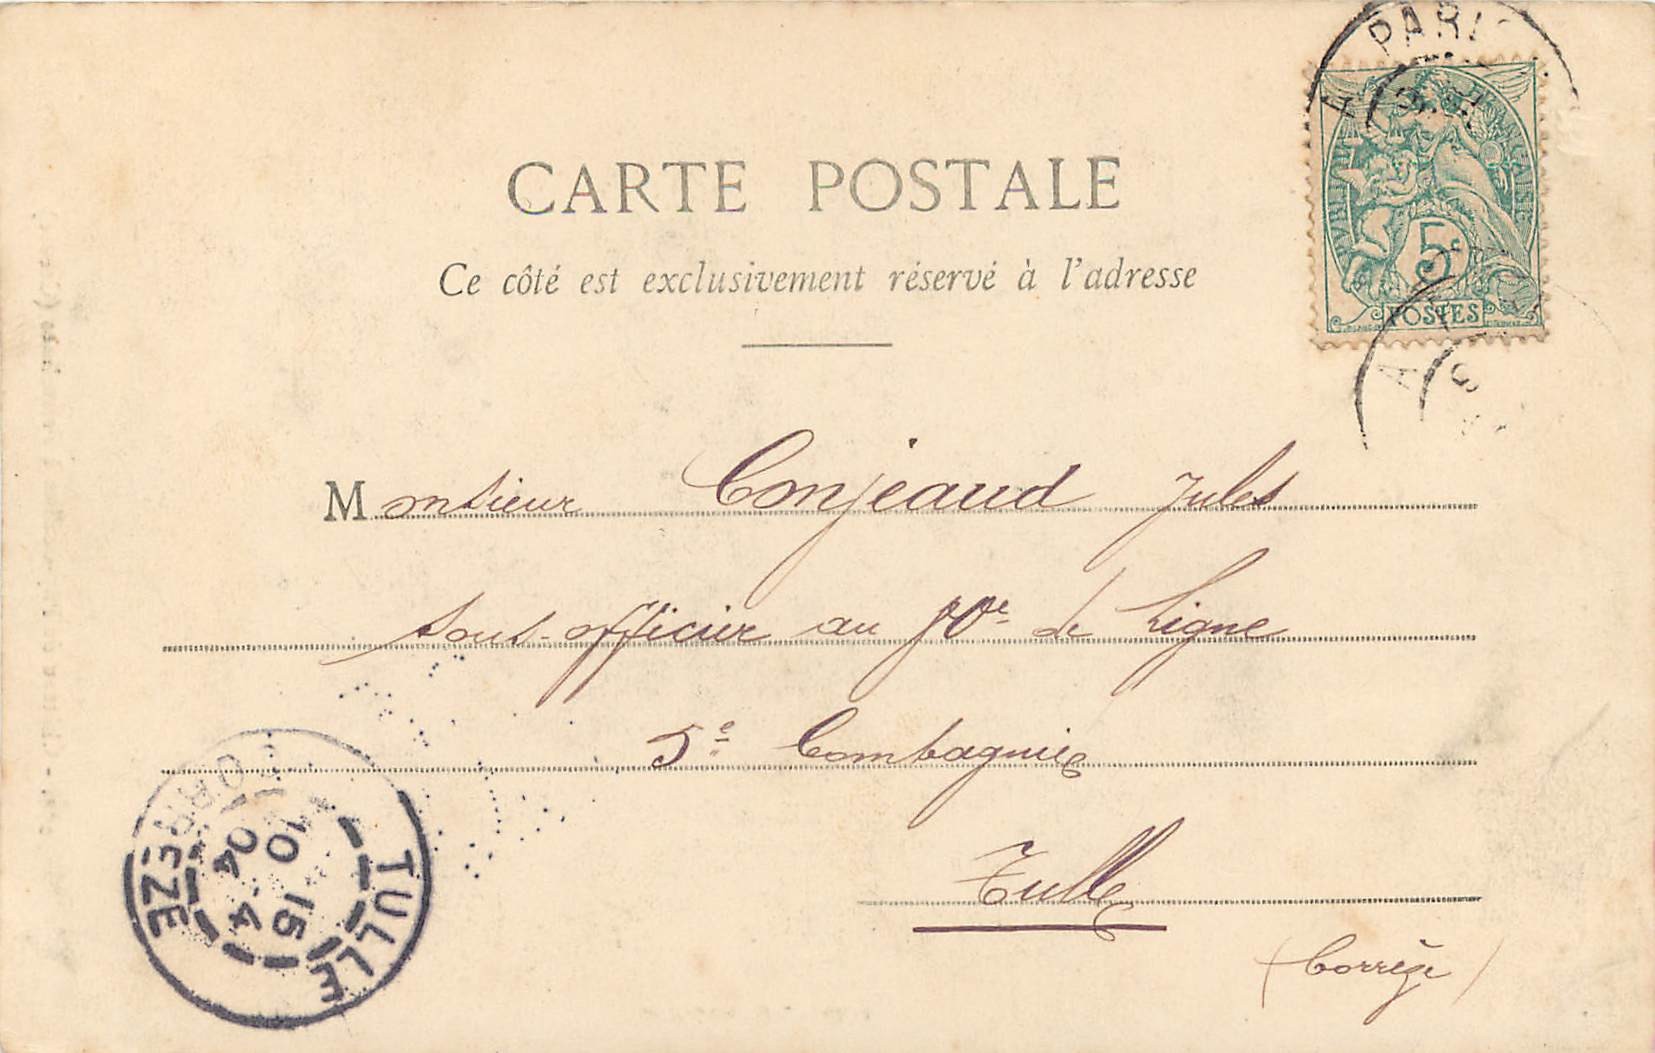 CARTE POSTALE
Ce côté est exclusivement réservé à l'adresse
A PARIS
RÉPUBLIQUE FRANÇAISE
5c
POSTES
Monsieur Conjeaud Jules
sous-officier au de Ligne
5e Compagnie
Tulle
(Corrèze)
TULLE
CORRÈZE
10 15
4
04